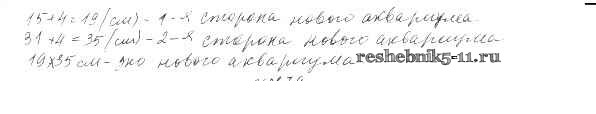 15+4=19(см) - 1-я сторона нового аквариума.
31+4=35(см) - 2-я сторона нового аквариума
19х35см - дно нового аквариума reshebnik5-11.ru